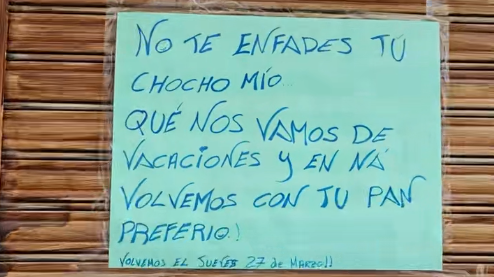 NO TE ENFADES TÚ
CHOCHO MÍO
QUÉ NOS VAMOS DE
VACACIONES Y EN NÁ
VOLVEMOS CON TU PAN
PREFERIO!
VOLVEMOS EL JUEVES 27 de MARZO!!